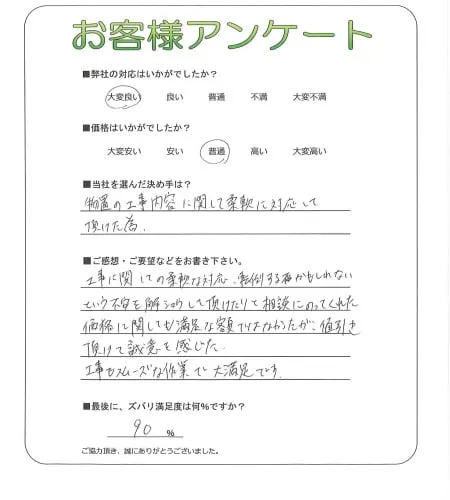 お客様アンケート
■弊社の対応はいかがでしたか？
大変良い 良い 普通 不満 大変不満
■価格はいかがでしたか？
大変安い 安い 普通 高い 大変高い
■当社を選んだ決め手は？
物置の工事内容に関して柔軟に対応して
頂けた為.
■ご感想・ご要望などをお書き下さい。
工事に関しての柔軟な対応、転倒する かもしれない
という不安を解消して頂けたりと相談にのってくれた
価格に関しても満足な額ではなかったが、値引き
頂けて誠意を感じた.
工事もスムーズな作業で大満足です.
■最後に、ズバリ満足度は何%ですか？
90 %
ご協力頂き、誠にありがとうございました。